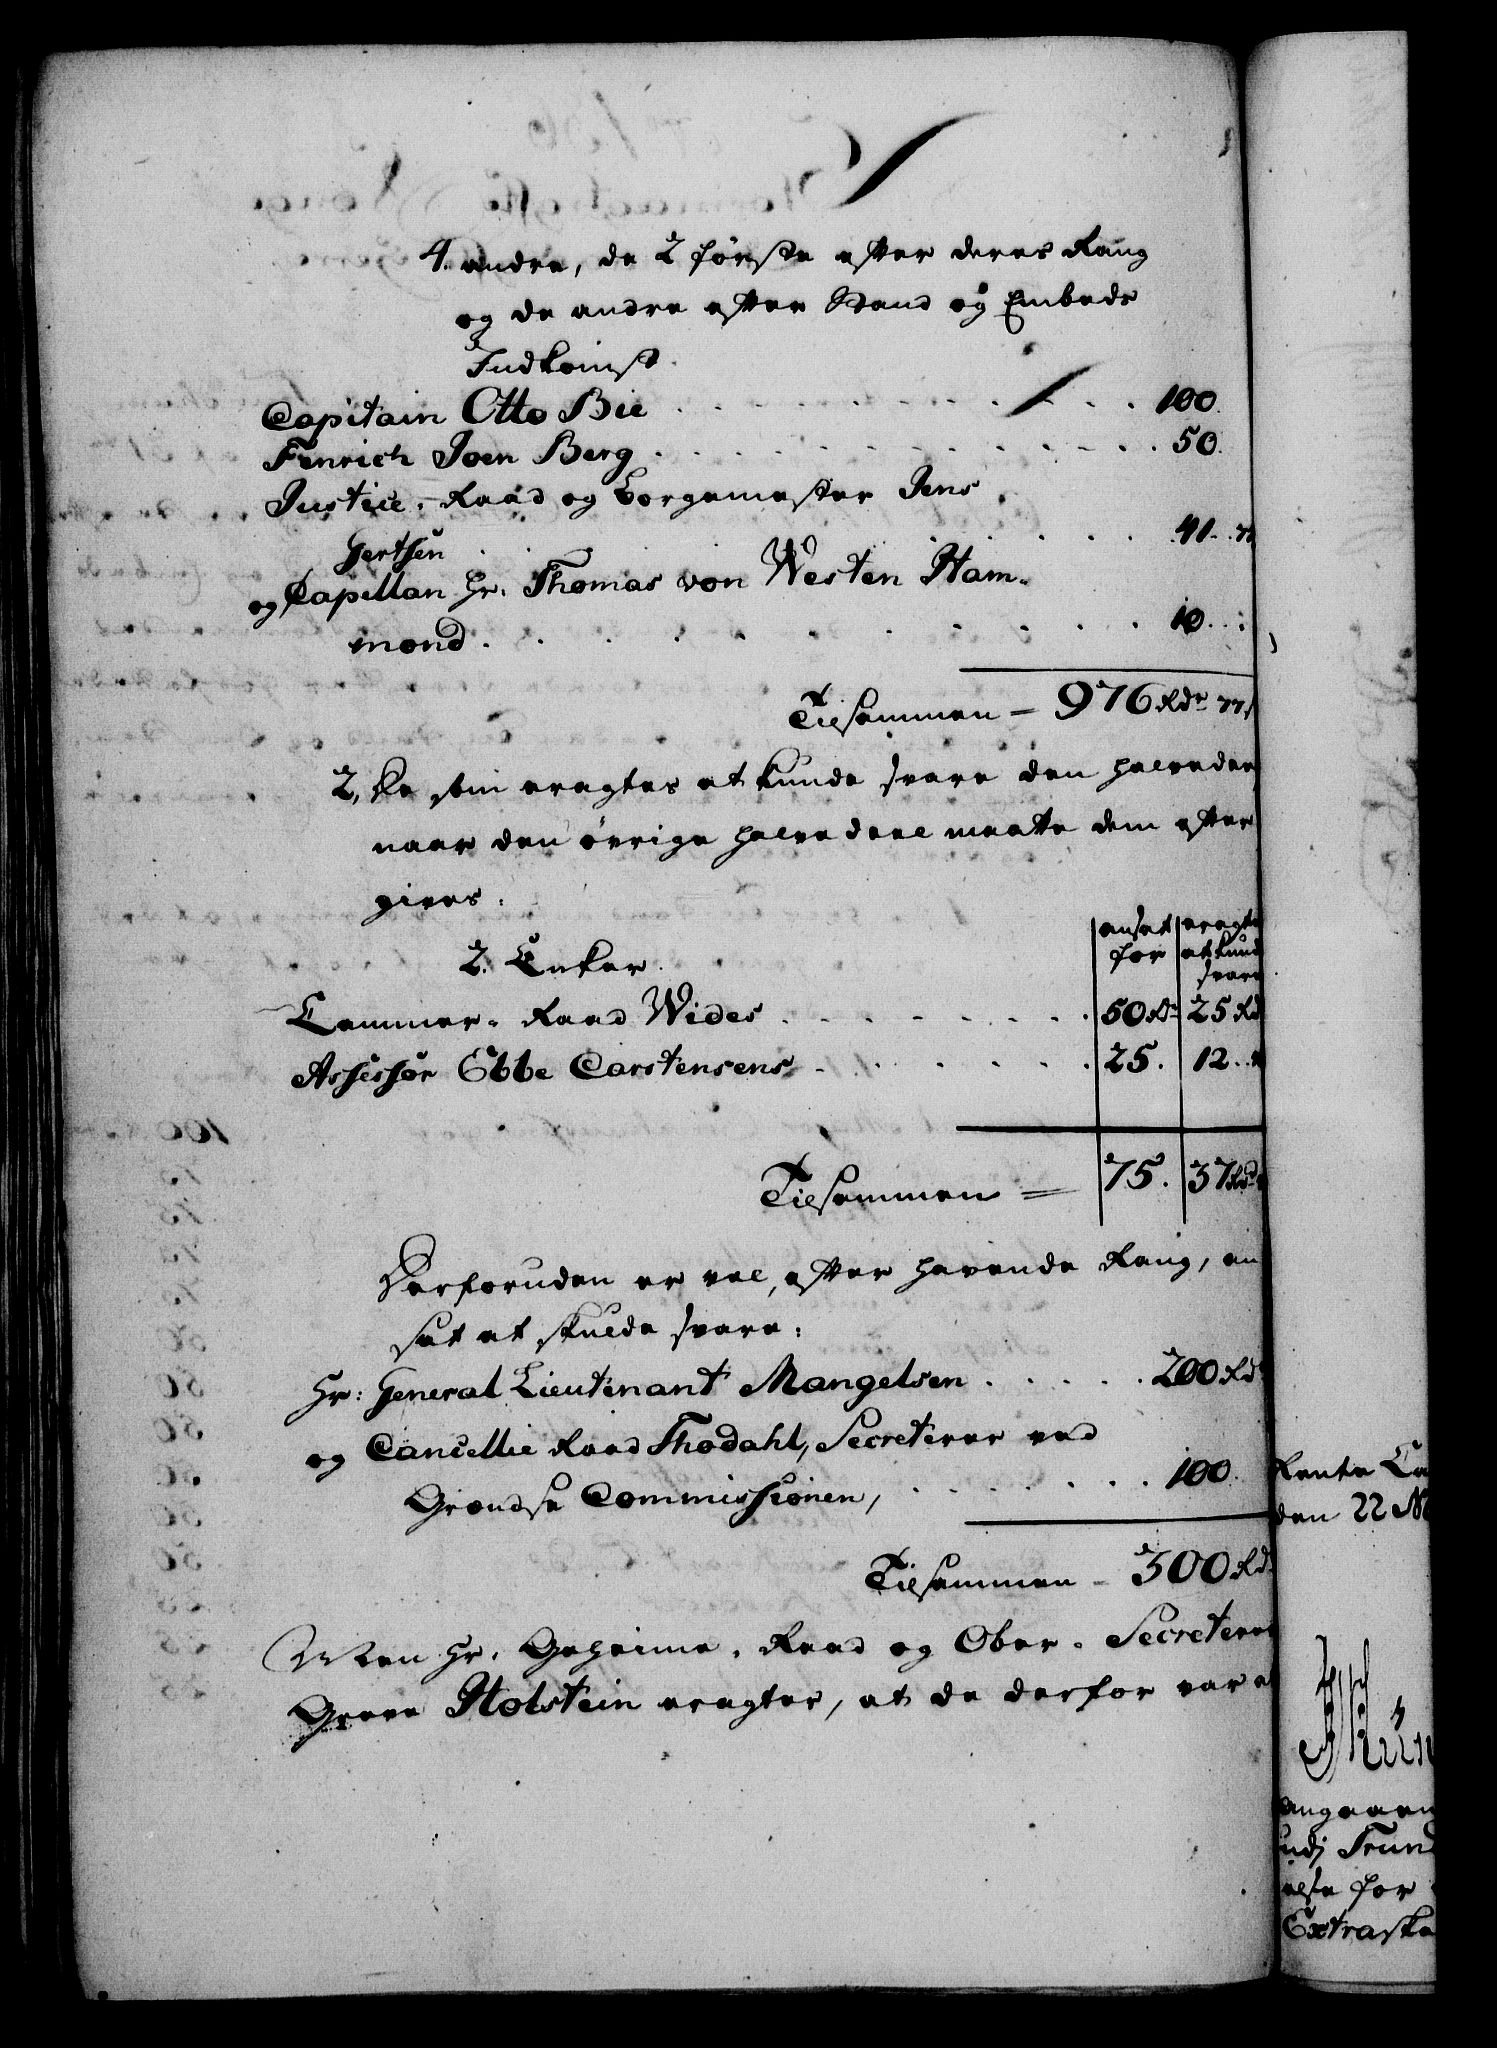 4. andre, de 2 første efter deres Rang
og de andre efter Stand og Embeds
Indkomst.
Capitain Otto Bie . . . . . . . . . . 100.
Fenrich Joen Berg . . . . . . . . . . 50.
Justice-Raad og Borgemester Jens
Gertsen . . . . . . . . . . 41..
og Capellan Hr. Thomas von Westen Ham-
mond . . . . . . . . . . 10..
Tilsammen - 976 Rdr 77
2, De som eragtes at kunde svare den halvedeel
naar den øvrige halvedeel maatte dem efter
gives.
ansat for | eragtes at kunde svare
2. Enker.
Cammer-Raad Wides . . . . . . . . 50 Rd | 25 Rd
Assessor Ebbe Carstensens . . . . . . 25. | 12..
Tilsammen = 75. | 37 Rd
Desforuden er vel, efter havende Rang, an
sat at skulde svare:
Hr: General Lieutenant Mangelsen . . . . . 200 Rd
og Cancellie Raad Thodahl, Secreterer ved
Grændse Commissionen, . . . . . . . 100.
Tilsammen - 300 Rd
Men Hr. Geheime-Raad og Ober-Secreterer
Greve Holstein eragter, at de derfor var
Rente Ca
den 22 M
angaaen
Trun
else for
Extraska